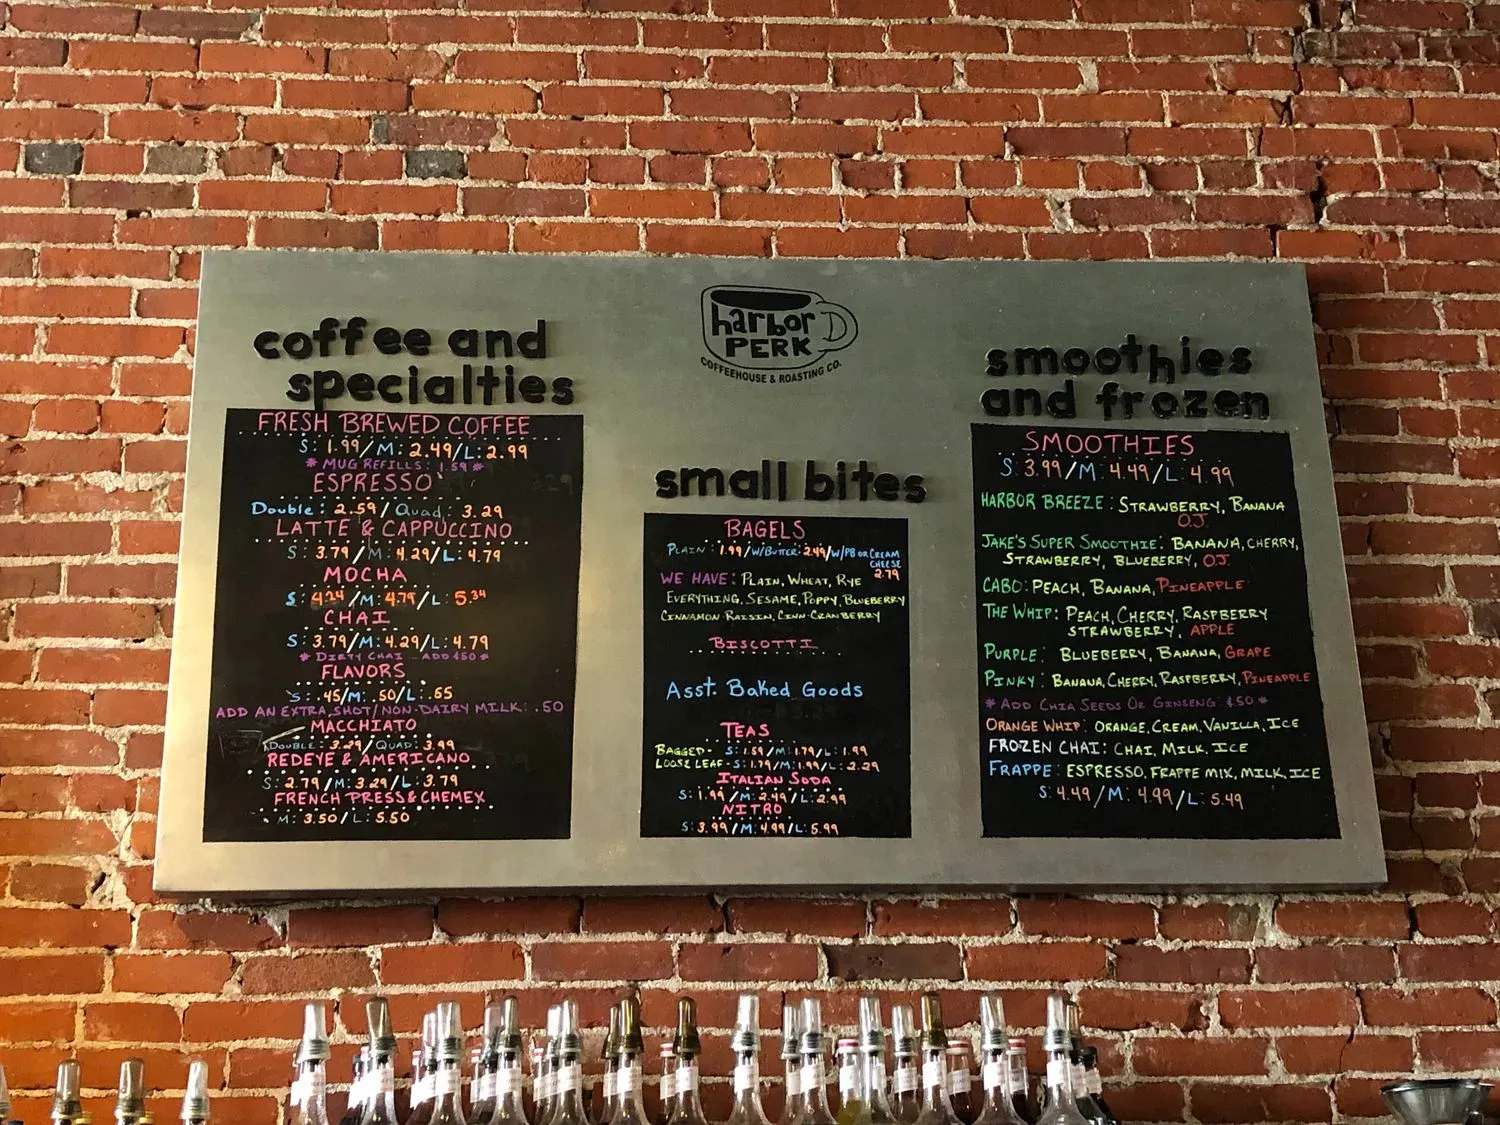 harbor
PERK
COFFEEHOUSE & ROASTING CO.
coffee and
specialties
FRESH BREWED COFFEE
S: 1.99/M: 2.49/L: 2.99
* MUG REFILLS: 1.59 *
ESPRESSO
Double: 2.59/Quad: 3.29
LATTE & CAPPUCCINO
S: 3.79/M: 4.29/L: 4.79
MOCHA
S: 4.24/M: 4.79/L: 5.34
CHAI
S: 3.79/M: 4.29/L: 4.79
* DIRTY CHAI ADD $.50 *
FLAVORS
S: .45/M: .50/L: .55
ADD AN EXTRA SHOT/NON-DAIRY MILK: .50
MACCHIATO
DOUBLE: 3.29/QUAD: 3.99
REDEYE & AMERICANO
S: 2.79/M: 3.29/L: 3.79
FRENCH PRESS & CHEMEX
M: 3.50/L: 5.50
small bites
BAGELS
PLAIN: 1.99/W/BUTTER: 2.49/W/PB OR CREAM
CHEESE
2.79
WE HAVE: PLAIN, WHEAT, RYE
EVERYTHING, SESAME, POPPY, BLUEBERRY
CINNAMON-RAISIN, CINN-CRANBERRY
BISCOTTI
Asst. Baked Goods
TEAS
BAGGED- S: 1.59/M: 1.79/L: 1.99
LOOSE LEAF- S: 1.79/M: 1.99/L: 2.29
ITALIAN SODA
S: 1.99/M: 2.49/L: 2.99
NITRO
S: 3.99/M: 4.99/L: 5.99
smoothies
and frozen
SMOOTHIES
S: 3.99/M: 4.49/L: 4.99
HARBOR BREEZE: STRAWBERRY, BANANA
O.J.
JAKE'S SUPER SMOOTHIE: BANANA, CHERRY,
STRAWBERRY, BLUEBERRY, O.J.
CABO: PEACH, BANANA, PINEAPPLE
THE WHIP: PEACH, CHERRY, RASPBERRY
STRAWBERRY, APPLE
PURPLE: BLUEBERRY, BANANA, GRAPE
PINKY: BANANA, CHERRY, RASPBERRY, PINEAPPLE
* ADD CHIA SEEDS OR GINSENG $.50 *
ORANGE WHIP: ORANGE, CREAM, VANILLA, ICE
FROZEN CHAI: CHAI, MILK, ICE
FRAPPE: ESPRESSO, FRAPPE MIX, MILK, ICE
S: 4.49/M: 4.99/L: 5.49